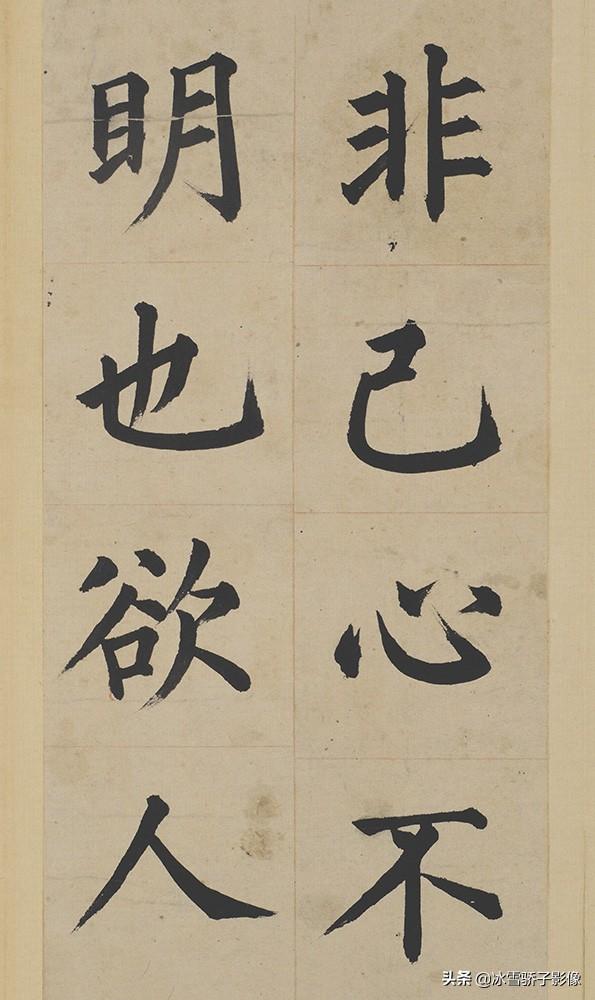 非己心不
明也欲人
头条 @冰雪骄子影像